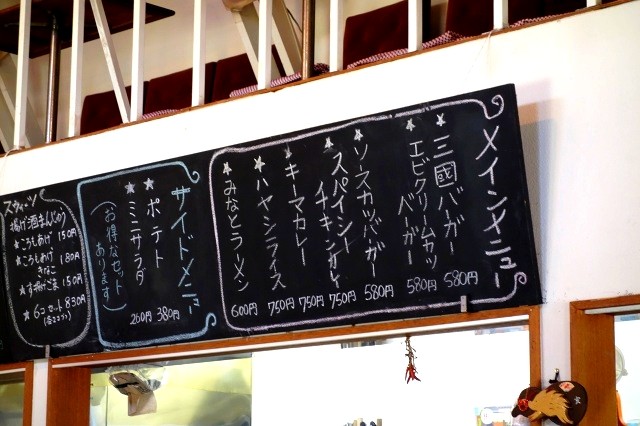 メインメニュー
★三國バーガー 580円
★エビクリームカツバーガー 580円
★ソースカツバーガー 580円
★スパイシーチキンカレー 750円
★キーマカレー 750円
★ハヤシライス 750円
★みなとラーメン 600円
サイドメニュー
★ポテト 380円
★ミニサラダ 200円
(お得なセットあります)
スウィーツ
揚げ酒まんじゅう
★ころもあげ 150円
★ころもあげ 180円
きなこ
★す揚げごま 150円
★6コセット 830円